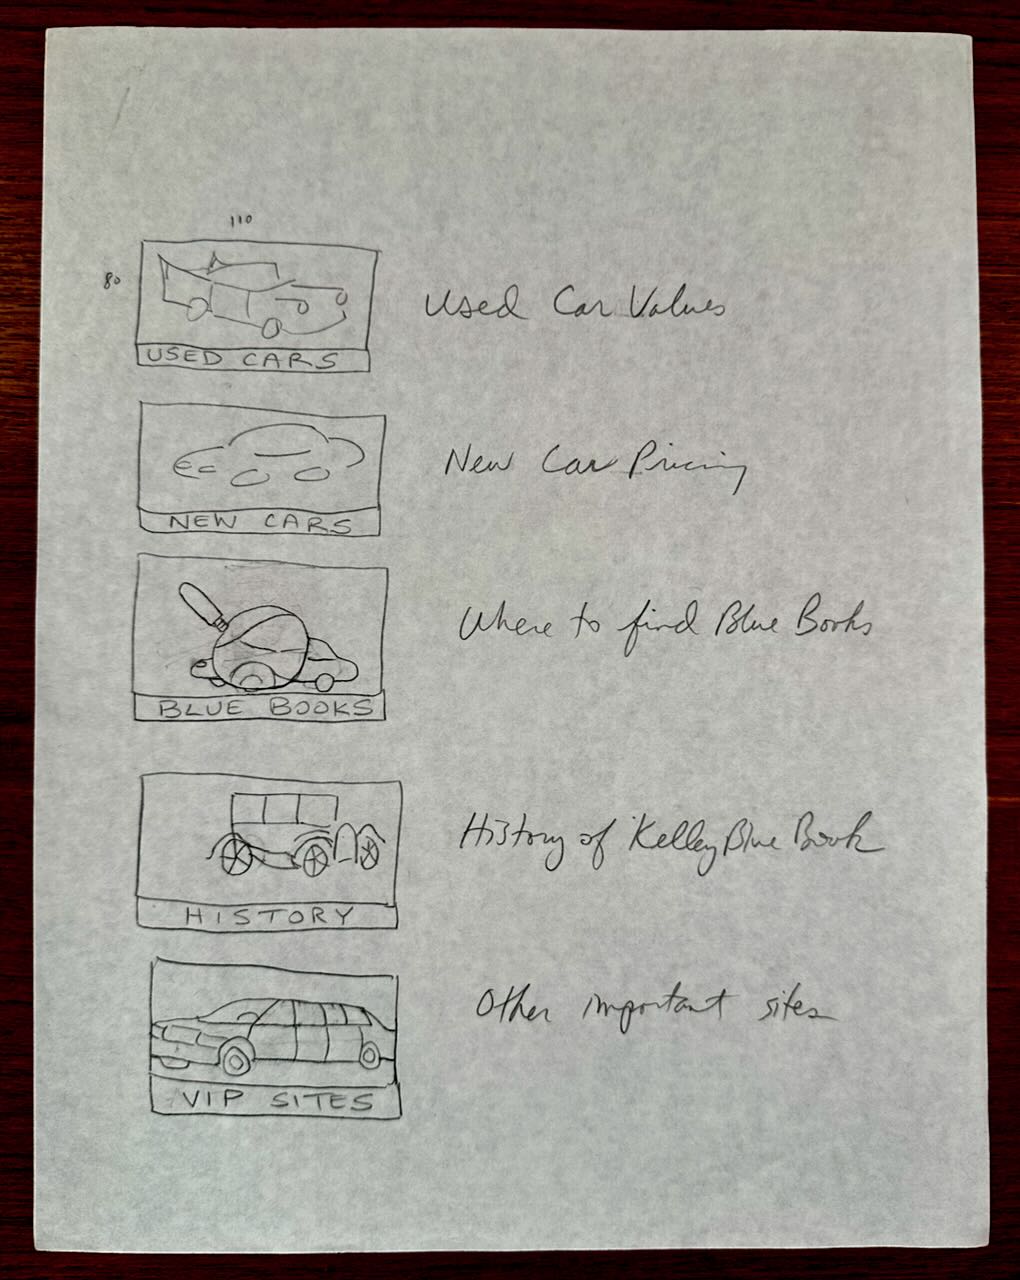 110
80
Used Car Values
USED CARS
New Car Pricing
NEW CARS
Where to find Blue Books
BLUE BOOKS
History of Kelley Blue Book
HISTORY
Other important sites
VIP SITES